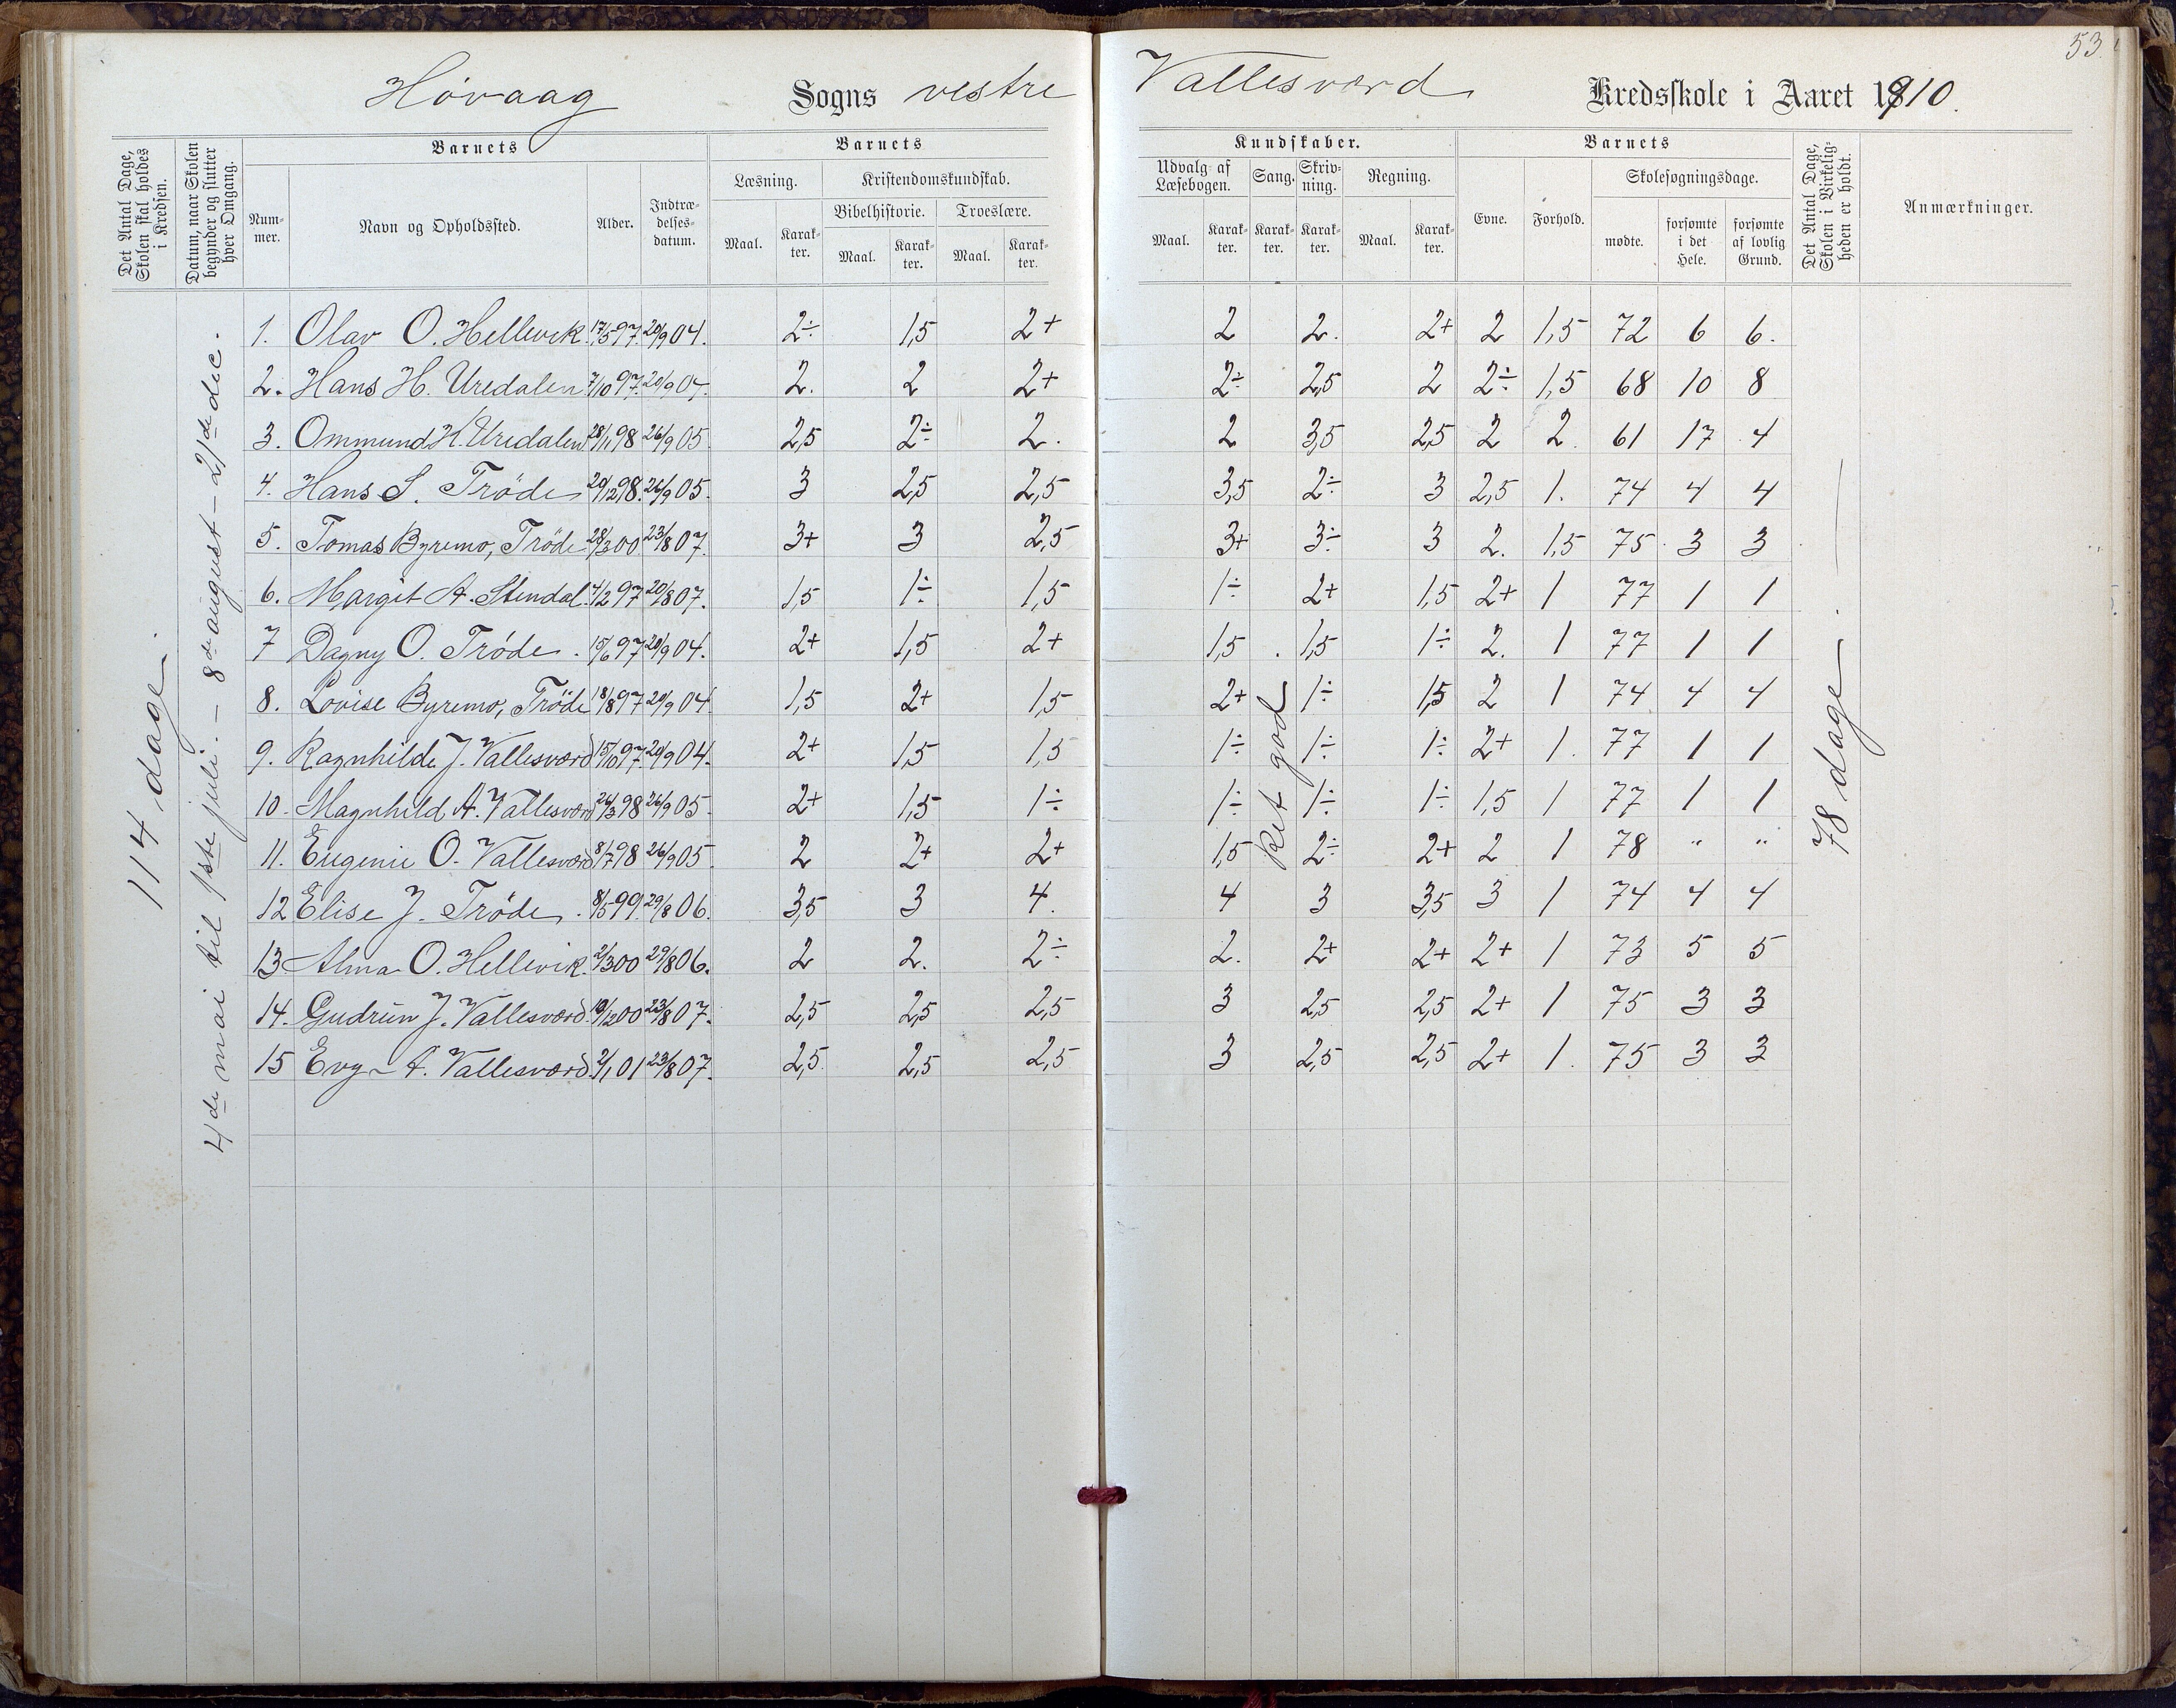 53.
Høvaag Sogns vestre Vallesværd Kredsskole i Aaret 1910.
Det Antal Dage, Skolen skal holdes i Kredsen.
Datum, naar Skolen begynder og slutter hver Omgang.
Barnets
Nummer.
Navn og Opholdssted.
Alder.
Indtrædelsesdatum.
Barnets
Læsning.
Kristendomskundskab.
Bibelhistorie. Troeslære.
Maal. Karakter. Maal. Karakter. Maal. Karakter.
Kundskaber.
Udvalg af Læsebogen. Sang. Skrivning. Regning.
Maal. Karakter. Karakter. Karakter. Maal. Karakter.
Barnets
Evne. Forhold. Skolesøgningsdage.
mødte. forsømte i det Hele. forsømte af lovlig Grund.
Det Antal Dage, Skolen i Virkeligheden er holdt.
Anmærkninger.
114 dage.
4de mai til 1ste juli. - 8de august - 21de dec.
1. Olav O. Hellevik. 17/5 97. 20/9 04. 2÷ 1,5 2+ 2 2. 2+ 2 1,5 72 6 6.
2. Hans H. Uredalen 7/10 97. 20/9 04. 2. 2 2+ 2÷ 2,5 2 2÷ 1,5 68 10 8
3. Ommund H. Uredalen 28/1 98 26/9 05. 2,5 2÷ 2. 2 3,5 2,5 2 2. 61 17 4
4. Hans S. Trøde 20/12 98. 26/9 05. 3 2,5 2,5 3,5 2÷ 3 2,5 1. 74 4 4
5. Tomas Byremo, Trøde 28/3 00 23/8 07. 3+ 3 2,5 3+ 3÷ 3 2. 1,5 75 3 3
6. Margit A. Stendal. 4/2 97 20/8 07. 1,5 1÷ 1,5 1÷ 2+ 1,5 2+ 1 77 1 1
7 Dagny O. Trøde. 15/6 97 20/9 04. 2+ 1,5 2+ 1,5 1,5 1÷ 2. 1 77 1 1
8. Lovise Byremo, Trøde 18/8 97 20/9 04. 1,5 2+ 1,5 2+ 1÷ 1,5 2 1 74 4 4
9. Ragnhilde J. Vallesværd 15/10 97. 20/9 04. 2+ 1,5 1,5 1÷ 1÷ 1÷ 2+ 1. 77 1 1
10. Magnhild A. Vallesværd 26/3 98 26/9 05. 2+ 1,5 1÷ 1÷ 1÷ 1÷ 1,5 1 77 1 1
11. Eugenie O. Vallesværd 8/7 98 26/9 05. 2 2+ 2+ 1,5 2÷ 2+ 2 1 78 " "
12 Elise J. Trøde. 8/5 99. 29/8 06. 3,5 3 4. 4 3 3,5 3 1 74 4 4
13 Alma O. Hellevik. 2/3 00 29/8 06. 2 2. 2÷ 2. 2+ 2+ 2+ 1 73 5 5
14. Gudrun J. Vallesværd. 19/12 00 23/8 07. 2,5 2,5 2,5 3 2,5 2,5 2+ 1 75 3 3
15 Evy A. Vallesværd. 2/1 01 23/8 07. 2,5 2,5 2,5 3 2,5 2,5 2+ 1. 75 3 3
Ret god
78 dage.